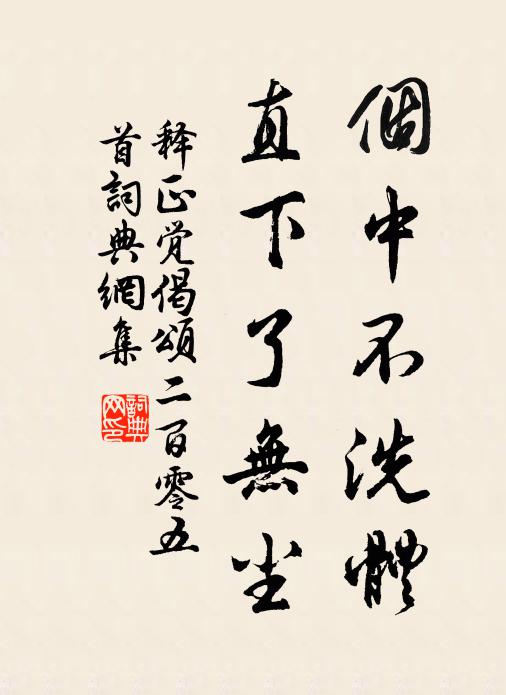 個中不洗體
直下了無尘
释正觉偈頌二百零五
首詞典網集
詞典网印